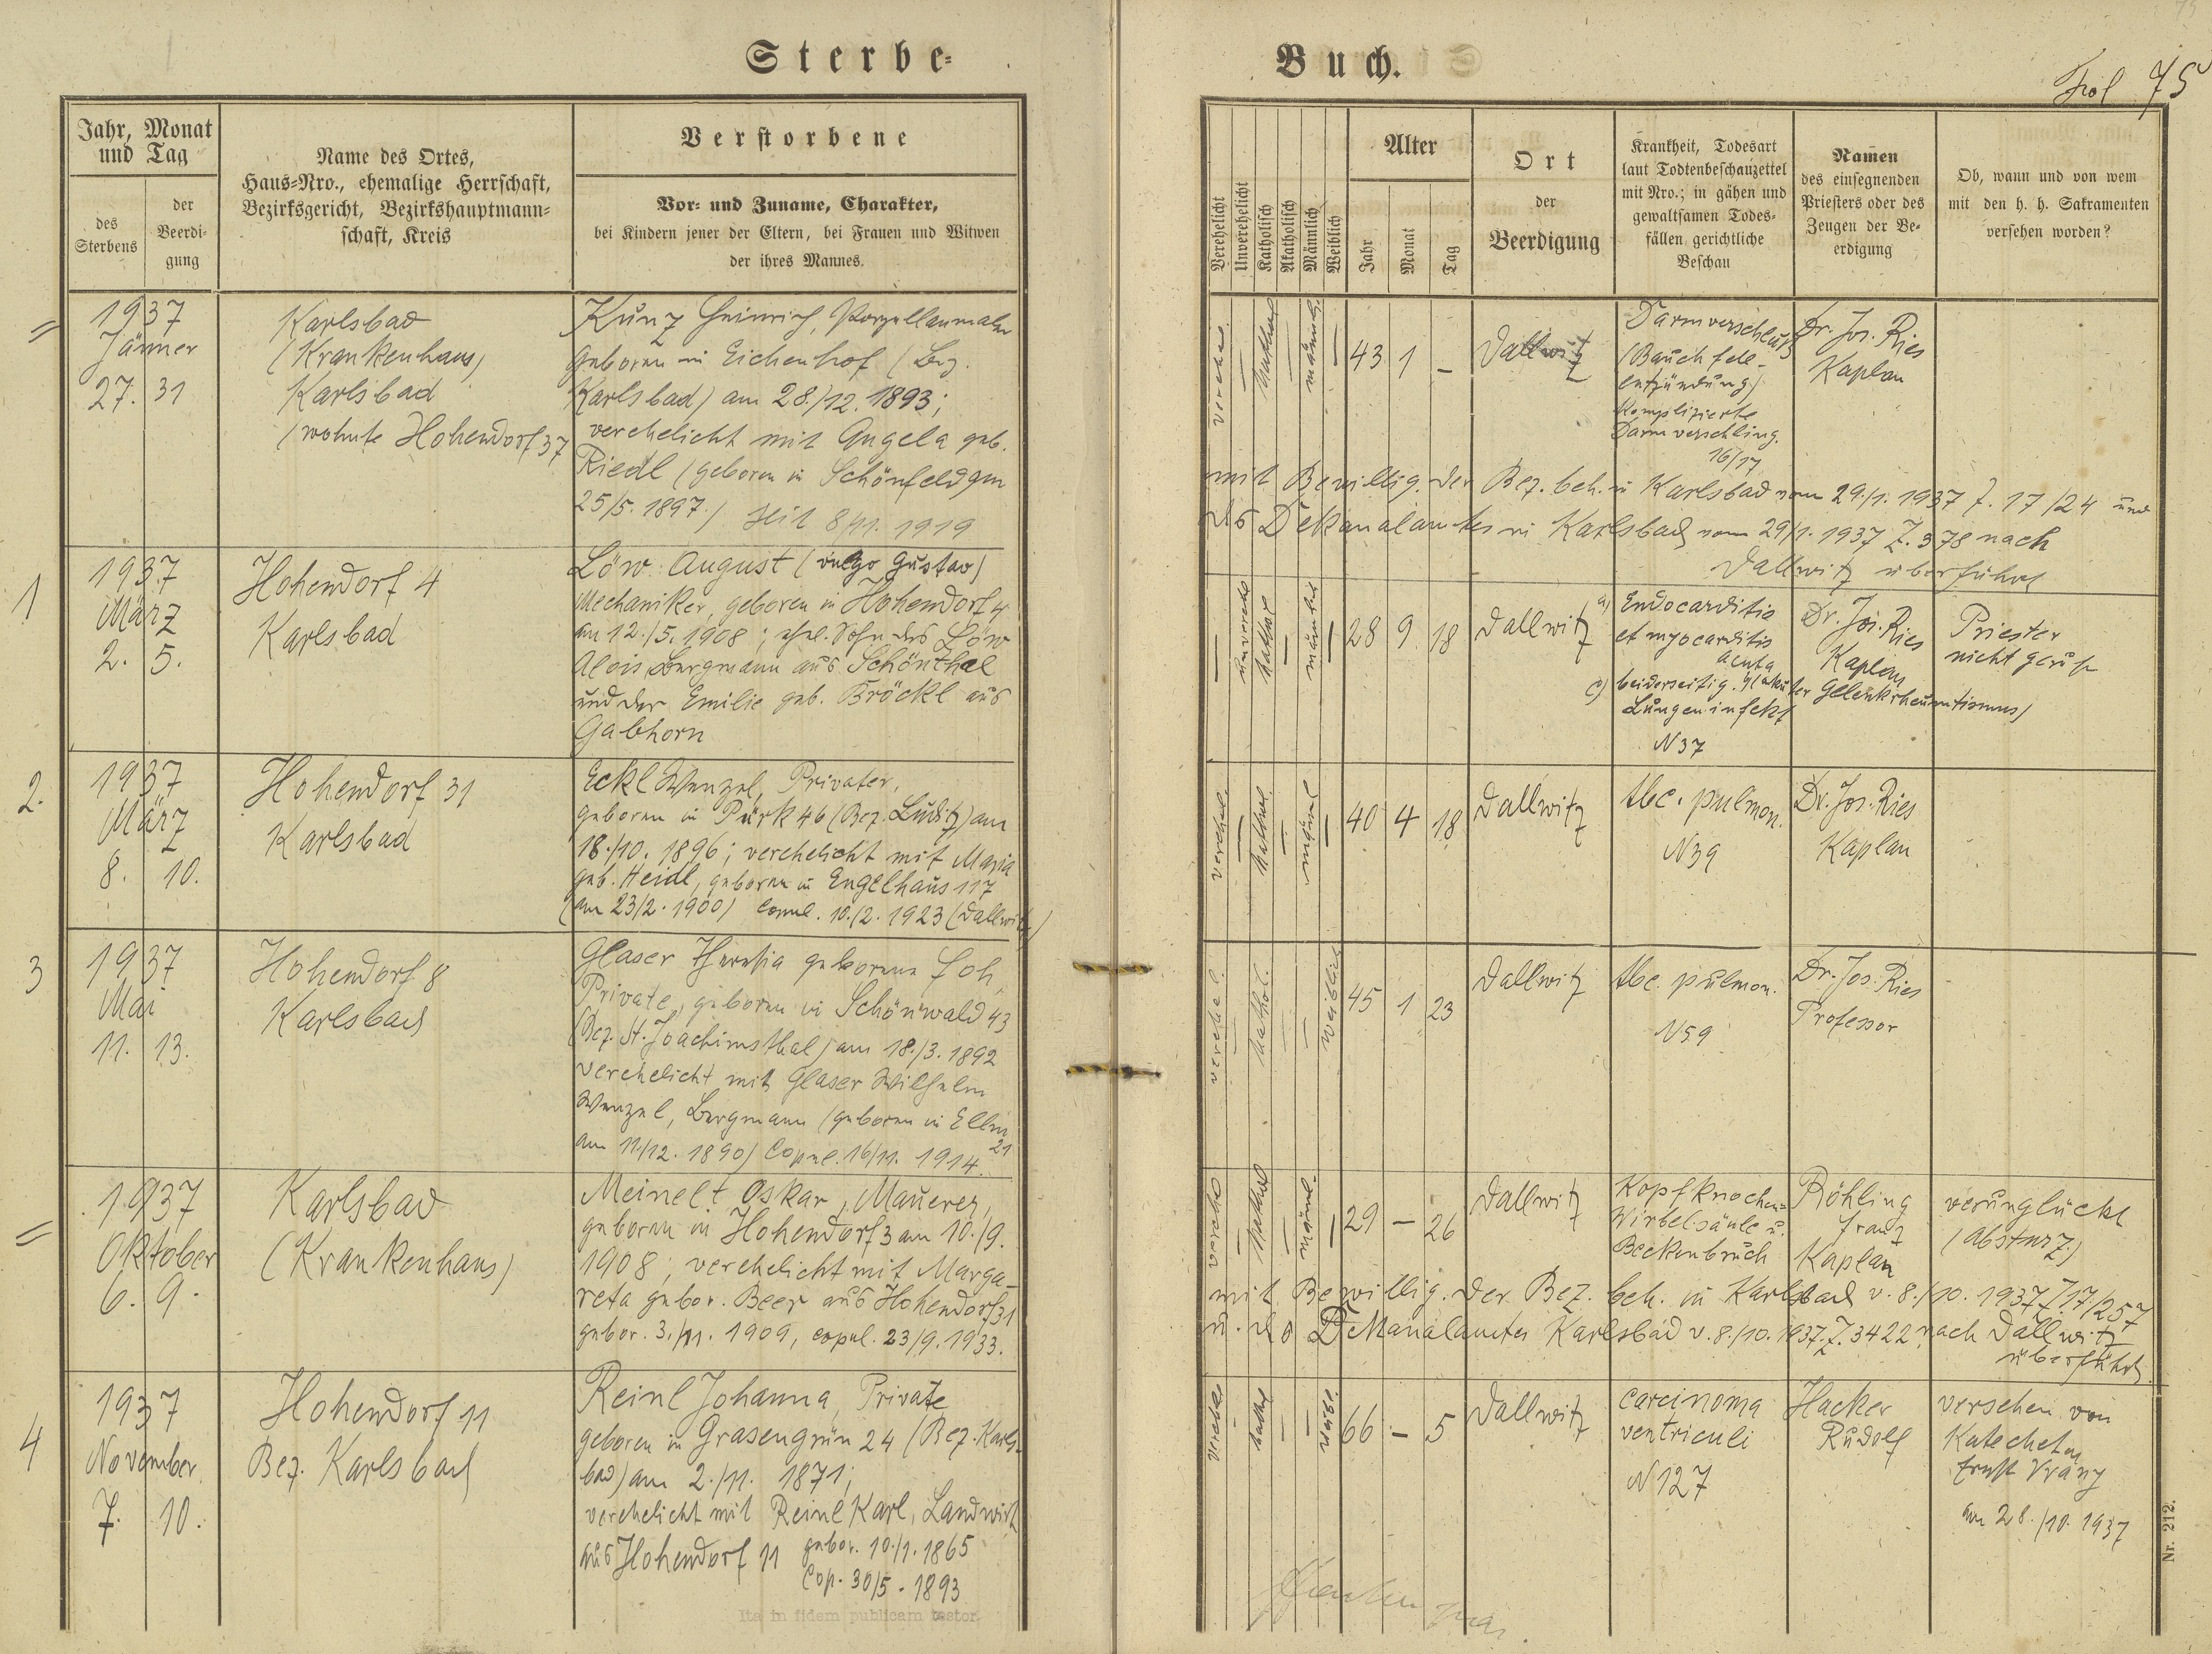 Sterbe-
Buch.
Fol 75
Jahr, Monat
und Tag
des
Sterbens
der
Beerdi-
gung
Name des Ortes,
Haus-Nro., ehemalige Herrschaft,
Bezirksgericht, Bezirkshauptmann-
schaft, Kreis
Verstorbene
Vor- und Zuname, Charakter,
bei Kindern jener der Eltern, bei Frauen und Witwen
der ihres Mannes.
Verehelicht
Unverehelicht
Katholisch
Akatholisch
Männlich
Weiblich
Alter
Jahr
Monat
Tag
Ort
der
Beerdigung
Krankheit, Todesart
laut Todtenbeschauzettel
mit Nro.; in gähen und
gewaltsamen Todes-
fällen gerichtliche
Beschau
Namen
des einsegnenden
Priesters oder des
Zeugen der Be-
erdigung
Ob, wann und von wem
mit den h. h. Sakramenten
versehen worden?
1937
Jänner
27. 31
Karlsbad
(Krankenhaus)
Karlsbad
(wohnte Hohendorf 37
Kunz Heinrich, Porzellanmaler
geboren in Eichenhof (Bez.
Karlsbad) am 28./12. 1893;
verehelicht mit Angela geb.
Riedl (geboren in Schönfeld am
25/5. 1897.) seit 8/11. 1919
43 1 –
Dallwitz
Darmverschluss
(Bauchfell-
entzündung)
Komplizierte
Darmverschling.
16/17
Dr. Jos. Ries
Kaplan
mit Bewillig. der Bez. beh. in Karlsbad vom 29./1. 1937 Z. 17/24 und
des Dekanalamtes in Karlsbad vom 29/1. 1937 Z. 378 nach
Dallwitz überführt
1
1937
März
2. 5.
Hohendorf 4
Karlsbad
Löw August (vulgo Gustav)
Mechaniker, geboren in Hohendorf 4
am 12./5. 1908; ehel. Sohn des Löw
Alois Bergmann aus Schönthal
und der Emilie geb. Bröckl aus
Gabhorn
28 9 18
Dallwitz
a) Endocarditis
et myocarditis
acuta
c) beiderseitig.
Lungeninfekt
N 37
Dr. Jos. Ries
Kaplan
Gelenkrheumatismus)
Priester
nicht geruf
2.
1937
März
8. 10.
Hohendorf 31
Karlsbad
Eckl Wenzel, Privater,
geboren in Pürk 46 (Bez. Luditz) am
18./10. 1896; verehelicht mit Maria
geb. Heidl, geboren in Engelhaus 117
(am 23/2. 1900) Copul. 10./2. 1923 (Dallwitz)
40 4 18
Dallwitz
tbc. pulmon.
N 39
Dr. Jos. Ries
Kaplan
3
1937
Mai
11. 13.
Hohendorf 8
Karlsbad
Glaser Theresia geborene Joh,
Private, geboren in Schönwald 43
(Bez. St. Joachimsthal) am 18./3. 1892
verehelicht mit Glaser Wilhelm
Wenzel, Bergmann (geboren in Ellm
21
am 11./12. 1890) Copul. 16/11. 1914.
45 1 23
Dallwitz
tbc. pulmon.
N 59
Dr. Jos. Ries
Professor
1937
Oktober
6. 9.
Karlsbad
(Krankenhaus)
Meinelt Oskar, Maurer,
geboren in Hohendorf 3 am 10./9.
1908; verehelicht mit Marga-
reta gebor. Beer aus Hohendorf 31
gebor. 3./11. 1909, copul. 23/9. 1933.
29 – 26
Dallwitz
Kopfknochen-
Wirbelsäule u.
Beckenbruch
Röhling
Franz
Kaplan
verunglückt
(Absturz)
mit Bewillig. der Bez. beh. in Karlsbad v. 8./10. 1937 Z. 17/257
u. des Dekanalamtes Karlsbad v. 8./10. 1937. Z. 3422 nach Dallwitz
überführt.
4
1937
November
7. 10.
Hohendorf 11
Bez. Karlsbad
Reinl Johanna, Private
geboren in Grasengrün 24 (Bez. Karls-
bad) am 2./11. 1871;
verehelicht mit Reinl Karl, Landwirt
aus Hohendorf 11 gebor. 10./1. 1865
Cop. 30/5. 1893
66 – 5
Dallwitz
Carcinoma
ventriculi
N 127
Hacker
Rudolf
versehen von
Katecheten
Ernst Vrany
am 28./10. 1937
Ita in fidem publicam testor.
Nr. 212.